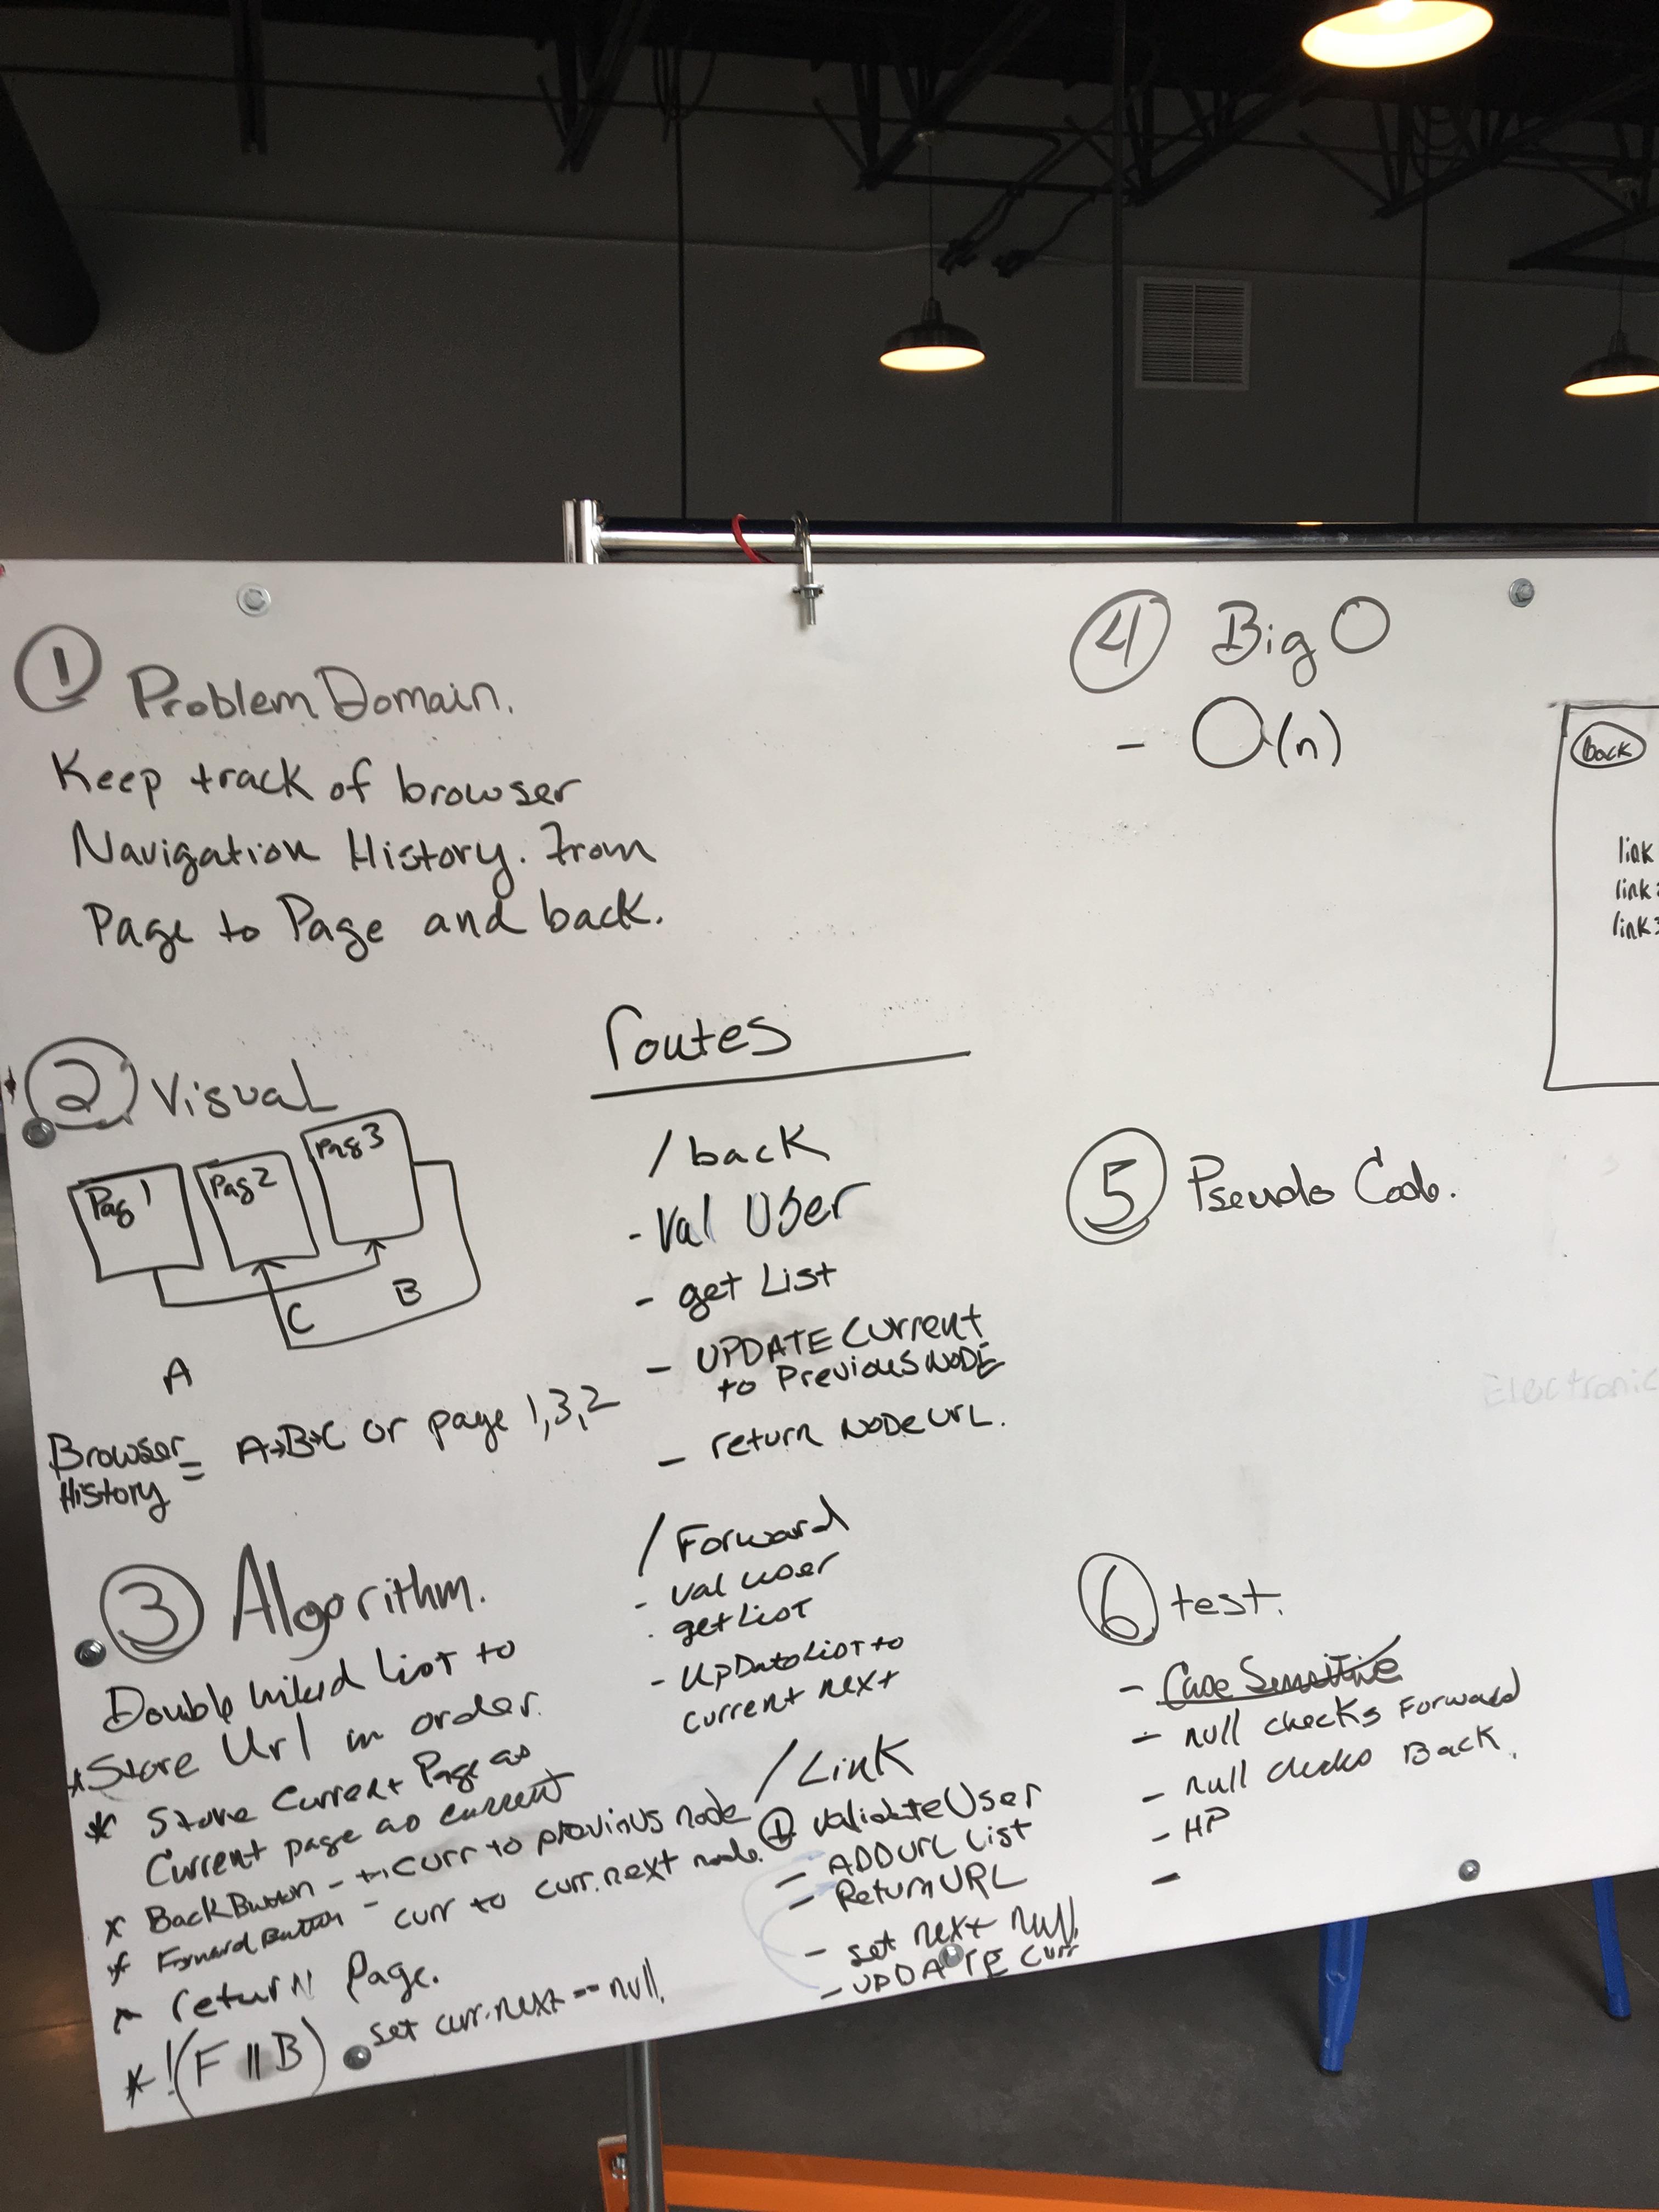 1 Problem Domain.
Keep track of browser
Navigation History. From
Page to Page and back.
2 Visual
Pag 1
Pag 2
Pag 3
A
B
C
Browser
History
= A→B→C or page 1,3,2
3 Algorithm.
Double linked List to
*Store Url in order.
* Store Current Page as
Current page as current
* Back Button - curr to previous node
* Forward Button - curr to curr.next node.
* return Page.
* !(F || B) set curr.next == null.
Routes
/back
- Val User
- get List
- UPDATE Current
to Previous NODE
- return NODE URL.
/Forward
- val user
- get List
- UpDate List to
current next
/Link
validate User
- ADD URL List
- Return URL
- set next null
- UPDATE Curr
4 Big O
- O(n)
back
link
link
link
5 Pseudo Code.
Electronic
6 test.
- Case Sensitive
- null checks Forward
- null checks Back.
- HP
-